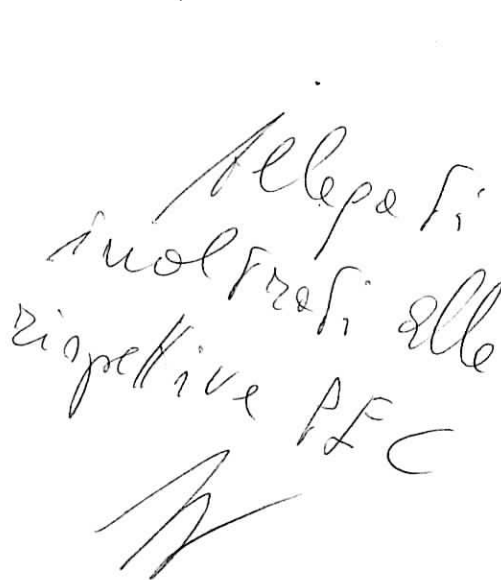 Allegati
inoltrati alle
rispettive PEC